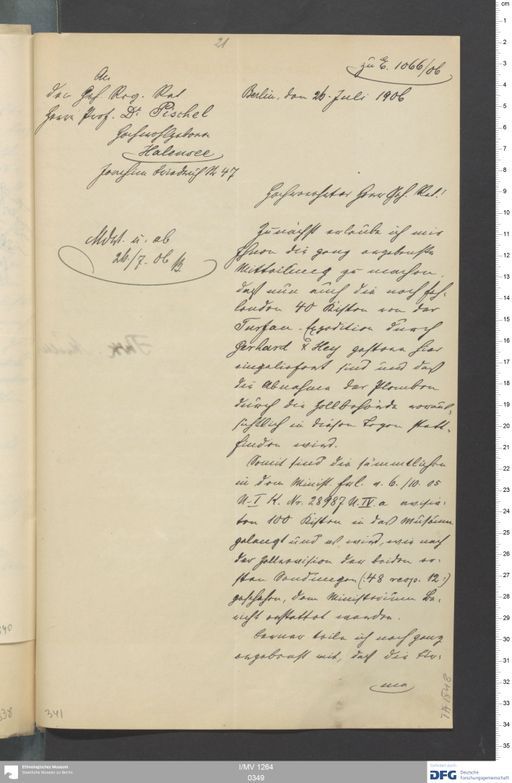 21
zu E. 1066/06
An
den Geh. Reg. Rat
Herrn Prof. Dr. Pischel
Hochwohlgeboren
Halensee
Joachim Friedrich Str 47
Berlin, den 26. Juli 1906
Hochverehrter Herr Geh. Rat!
Mdt. u. ab
26/7. 06
Zunächst erlaube ich mir
Ihnen die ganz ergebenste
Mitteilung zu machen,
daß nun auch die noch feh-
lenden 40 Kisten von der
Turfan-Expedition durch
Gerhard & Hey gestern hier
eingeliefert sind und daß
die Abnahme der Plomben
durch die Zollbehörde voraus-
sichtlich in diesen Tagen statt-
finden wird.
Somit sind die sämmtlichen
in dem Minist. Erl. v. 6./10. 05
U. I K. Nr. 28987 U. IV. a
ten 100 Kisten in das Museum
gelangt und es wird, wie nach
der Zollrevision der beiden er-
sten Sendungen (: 48 resp. 12 :)
geschehen, dem Ministerium Be-
richt erstattet werden.
Ferner teile ich noch ganz
ergebenst mit, daß die Fir-
ma
341
I/MV 1264
0349
Ethnologisches Museum
Staatliche Museen zu Berlin
DFG
Deutsche
Forschungsgemeinschaft